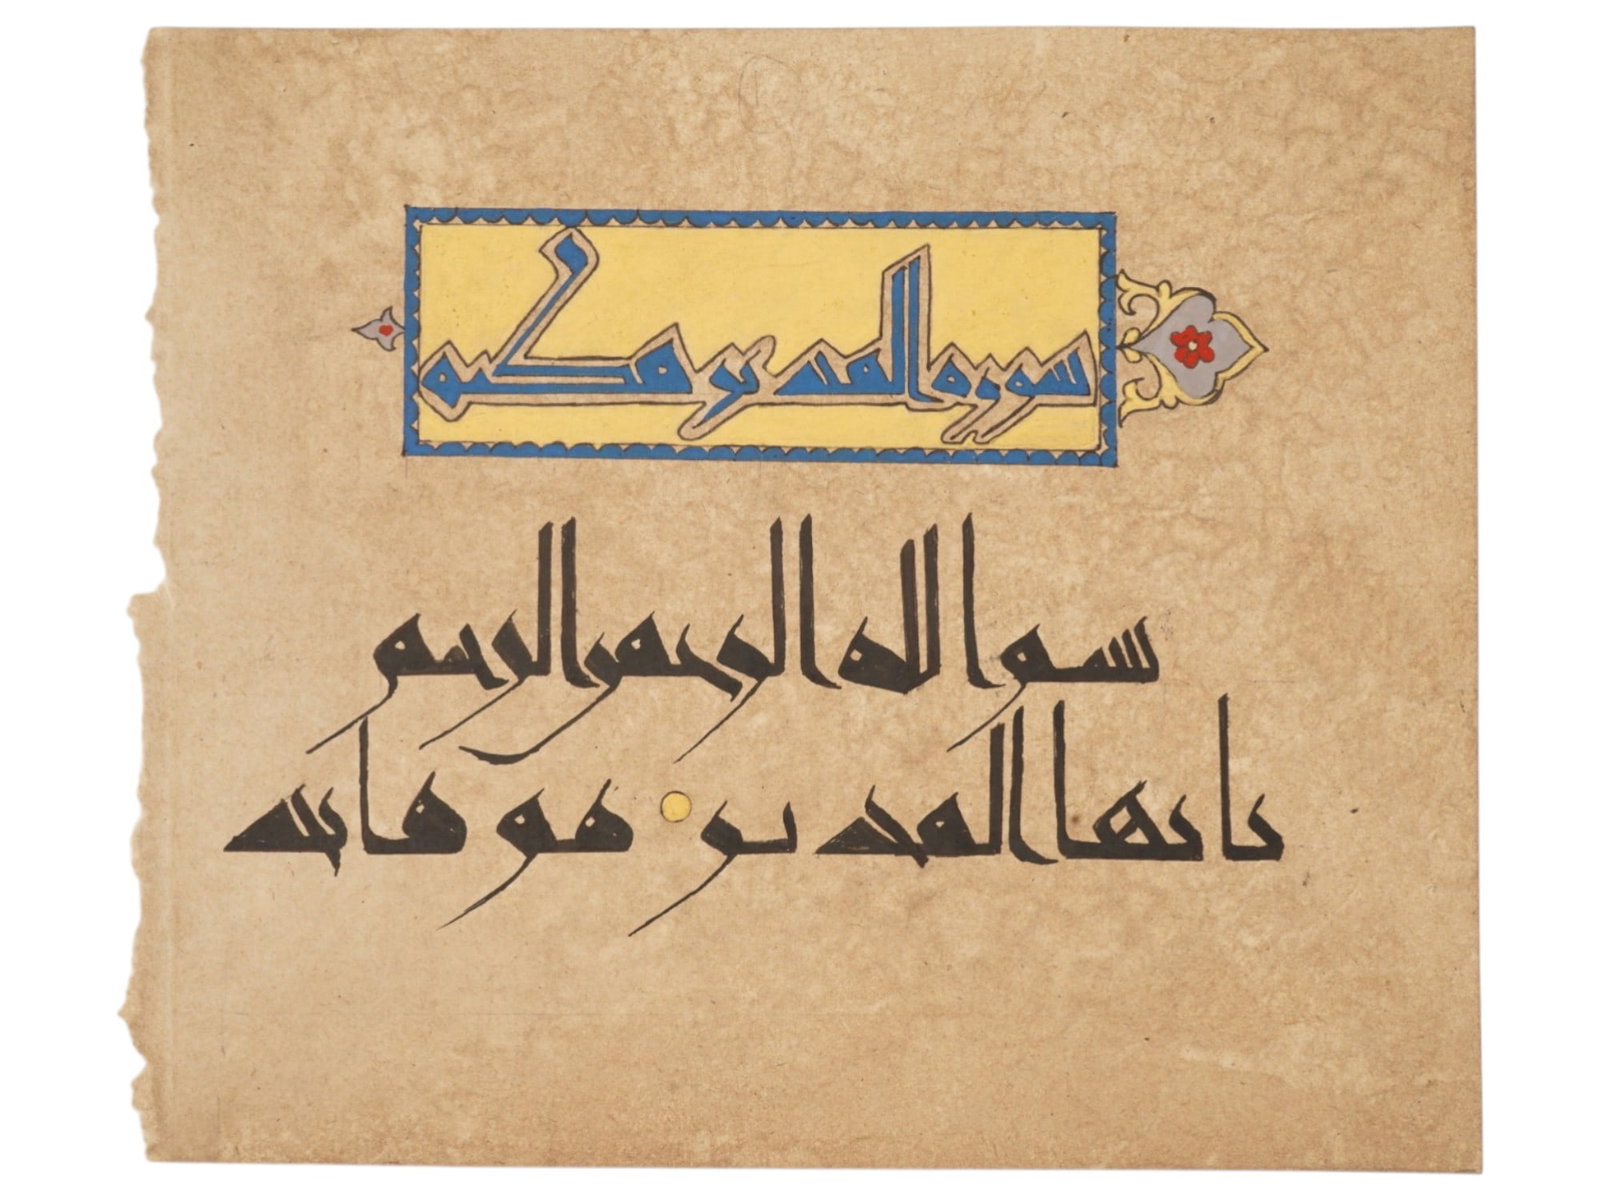 سورة المدثر مكية
بسم الله الرحمن الرحيم
يا يها المدثر قم فانذ